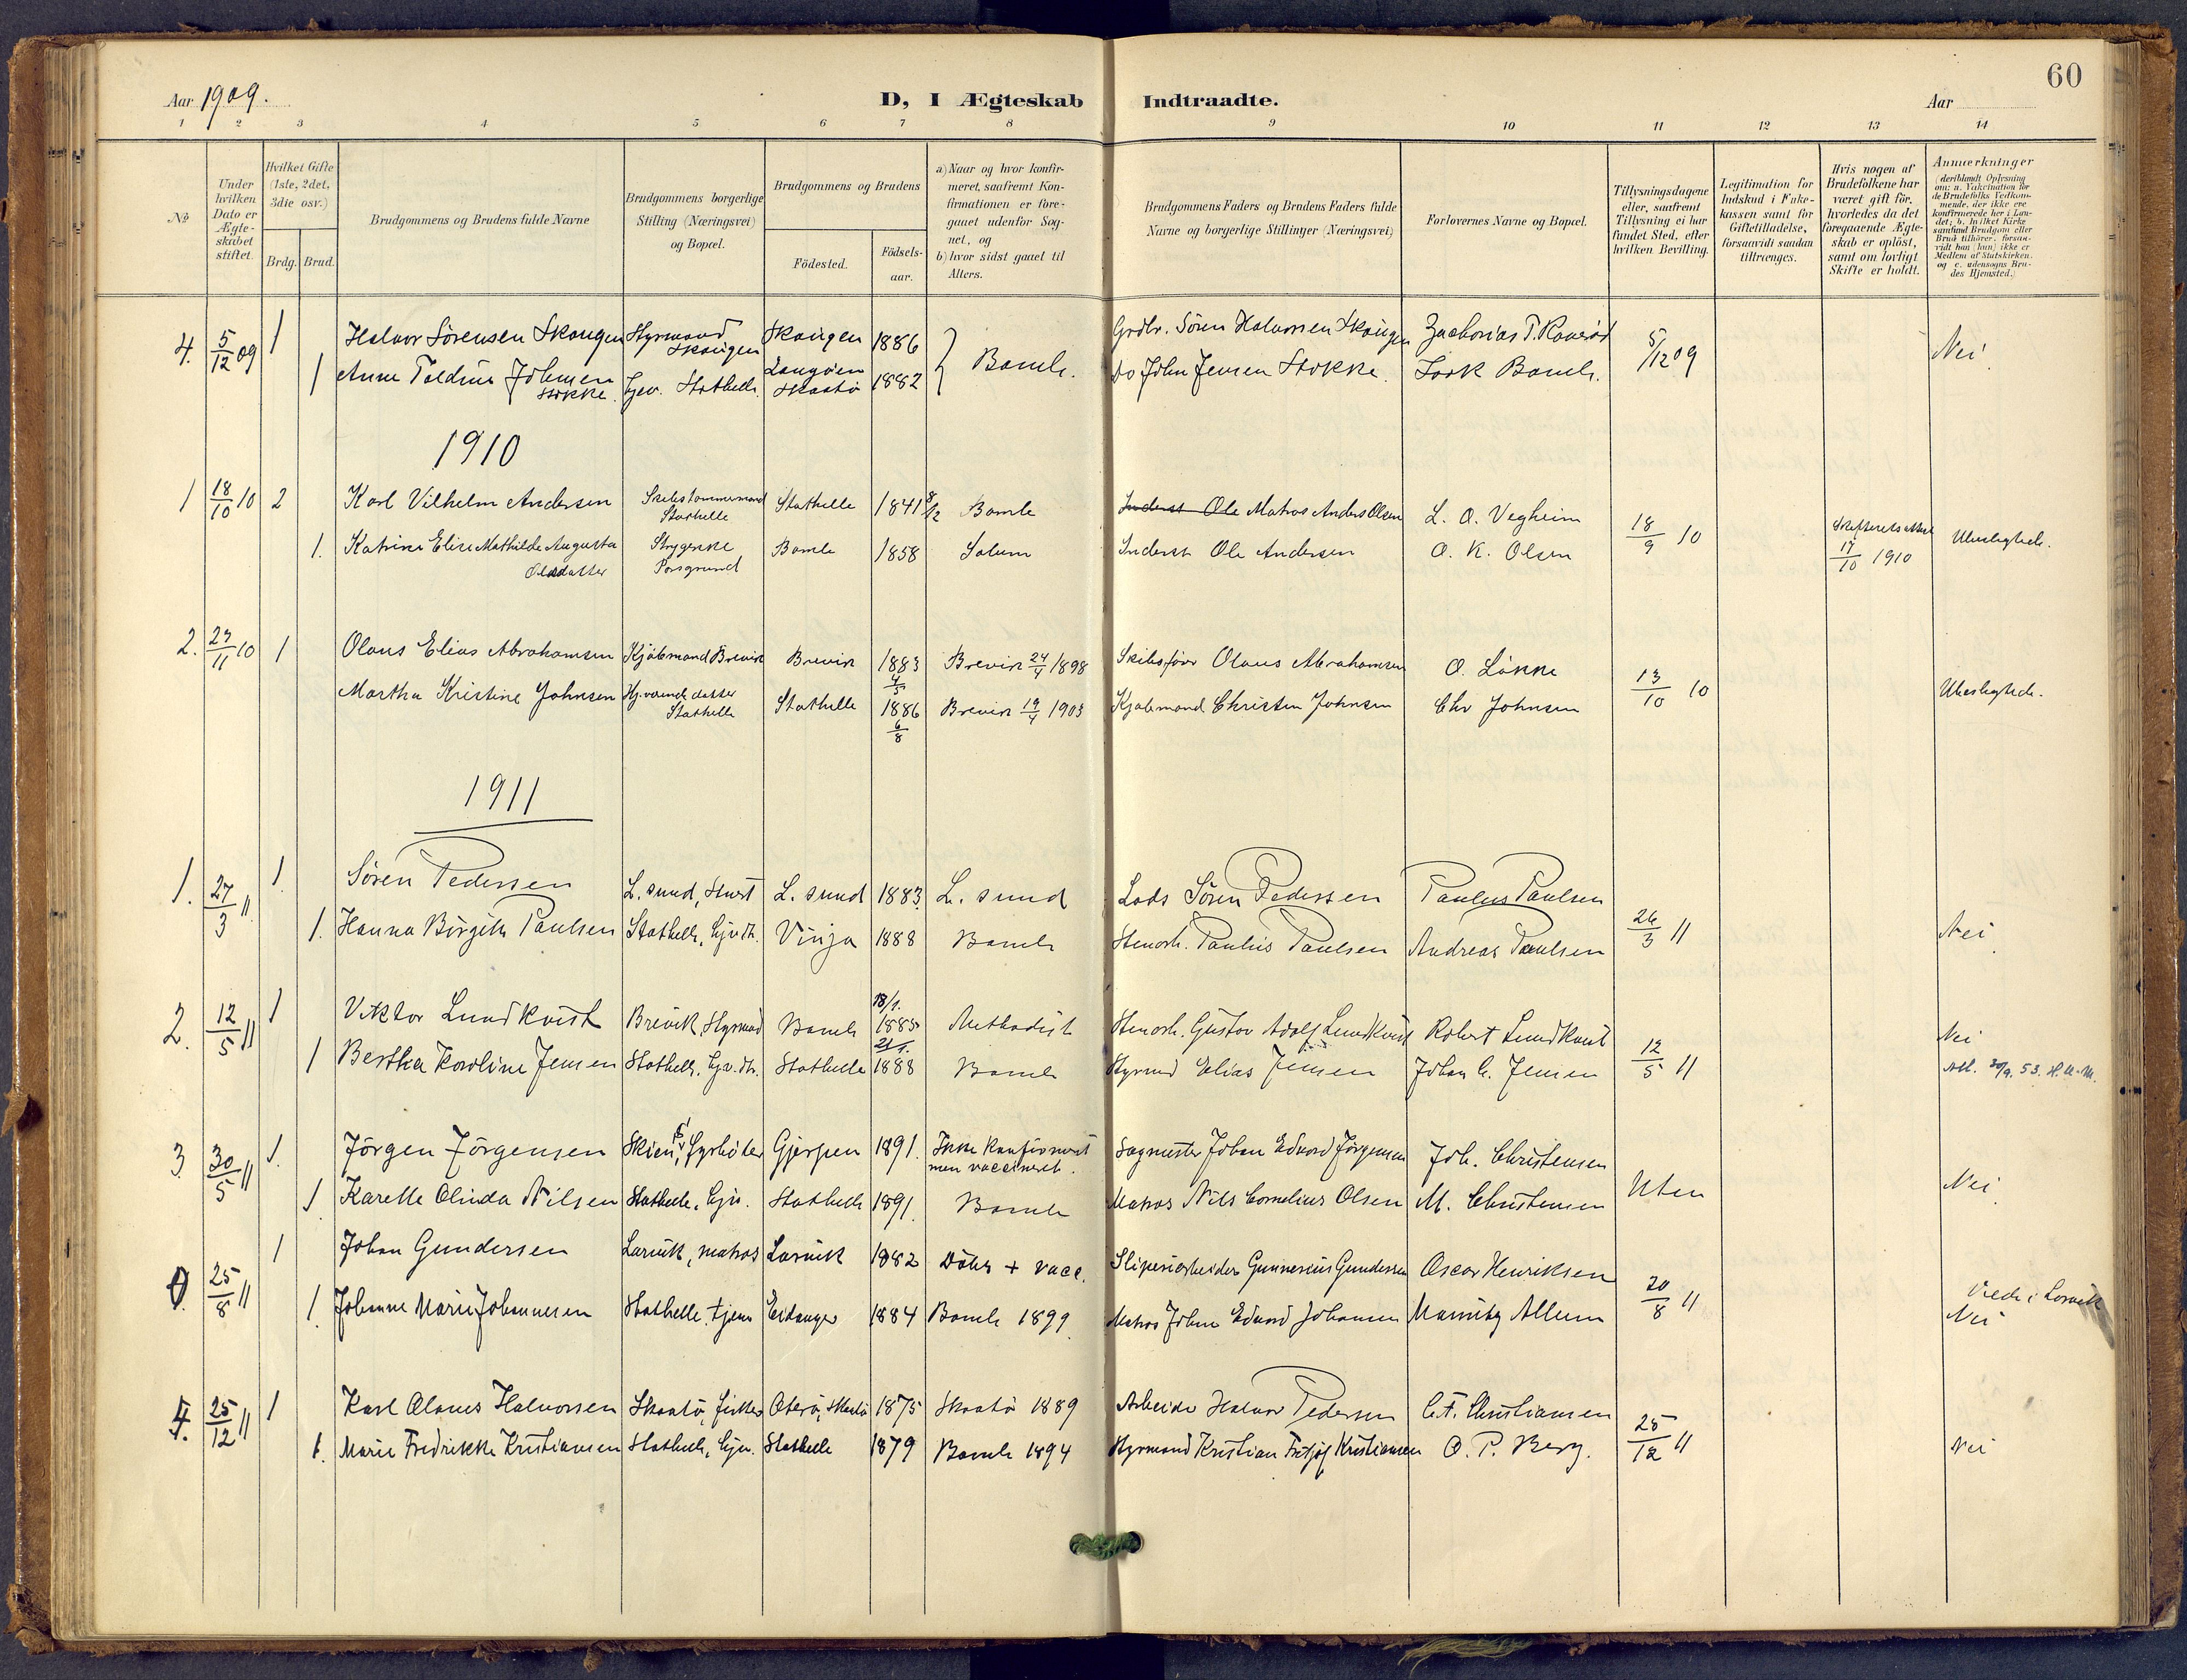 Aar 1909.
D, I Ægteskab Indtraadte.
Aar
60
1 2 3 4 5 6 7 8 9 10 11 12 13 14
No
Under hvilken Dato er Ægteskabet stiftet.
Hvilket Gifte (1ste, 2det, 3die osv.)
Brdg. Brud.
Brudgommens og Brudens fulde Navne
Brudgommens borgerlige Stilling (Næringsvei) og Bopæl.
Brudgommens og Brudens
Födested.
Födsels-aar.
a) Naar og hvor konfirmeret, saafremt Konfirmationen er foregaaet udenfor Sognet, og
b) hvor sidst gaaet til Alters.
Brudgommens Faders og Brudens Faders fulde Navne og borgerlige Stillinger (Næringsvei)
Forlovernes Navne og Bopæl.
Tillysningsdagene eller, saafremt Tillysning ei har fundet Sted, efter hvilken Bevilling.
Legitimation for Indskud i Enkekassen samt for Giftetilladelse, forsaavidt saadan tiltrænges.
Hvis nogen af Brudefolkene har været gift för, hvorledes da det foregaaende Ægteskab er oplöst, samt om lovligt Skifte er holdt.
Anmerkninger (deriblandt Oplysning om: a. Vakcination for de Brudefolks Vedkommende, der ikke ere konfirmerede her i Landet; b. hvilket Kirkesamfund Brudgom eller Brud tilhörer, forsaavidt han (hun) ikke er Medlem af Statskirken, og c. udensogns Brudes Hjemsted.)
4. 5/12 09 1 Halvor Sörensen Skougen Styrmand Skougen Skougen 1886 Bamle. Grdbr. Sören Halvorsen Skougen Zacharias T. 5/12 09 Nei
1 Anne Johnsen Stokke Hjev. Stathelle. Langöen Skaatö 1882 Do John Jensen Stokke. Bamle.
1910
1 18/10 10 2 Karl Vilhelm Andersen Skibstømmermand Stathelle Stathelle 1841 8/12 Bamle Inderst Ole Matros Anders Olsen L. O. Vegheim 18/9 10 17/10 1910 Ubeslegtede.
1. Katrine Elise Mathilde Augusta Olsdatter Strygerske Porsgrund Bamle 1858 Solum Inderst Ole Andersen O. K. Olsen
2. 27/11 10 1 Olaus Elias Abrahamsen Kjöbmand Brevik Brevik 1883 4/5 Brevik 24/4 1898 Skibsfører Olaus Abrahamsen O. Løkke 13/10 10 Ubeslegtede.
Martha Kristine Johnsen Hj.værende datter Stathelle Stathelle 1886 6/8 Brevik 19/4 1903 Kjøbmand Christen Johnsen Chr Johnsen
1911
1. 27/3 11. 1. Sören Pedersen L. sund, Stuert L. sund 1883. L. sund Lods Sören Pedersen Paulus Paulsen 26/3 11 Nei
1. Hanna Birgithe Paulsen Stathelle, hjv dtr. Vinja 1888 Bamle Stenarb. Paulus Paulsen Andreas Paulsen
2. 12/5 11 1 Viktor Lundkvist Brevik, Styrmand Bamle 18/1. 1885 Methodist Stenarb. Gustav Adolf Lundkvist Robert Lundkvist 12/5 11 Nei
1 Berthe Karoline Jensen Stathelle, hjv. dtr. Stathelle 21/1. 1888 Bamle Styrmd Elias Jensen Johan C. Jensen Att. 30/9. 53. H. U-M.
3. 30/5 11 1. Jörgen Jörgensen Skien, fyrböter Gjerpen 1891. Ikke konfirmert men vaccineret. Sagmester Johan Edvard Jörgensen Joh. Christensen Uten Nei
1. Karelle Olinda Nilsen Stathelle, hjv. Stathelle 1891. Bamle Matros Nils Cornelius Olsen M. Christensen
4. 25/8 11 1 Johan Gundersen Larvik, matros Larvik 1882 Döbt + vacc. Sliperiarbeider Gunnerius Gundersen Oscar Henriksen 20/8 11 Viede i Larvik
1. Johanne Marie Johannesen Stathelle. tjen Eidanger 1884 Bamle 1899. Matros Johan Edvard Johansen Allum Nei
5. 25/12 11 1 Karl Olaves Halvorsen Skaatö, fisker Oterö, Skaatö 1875 Skaatö 1889 Arbeider Halvor Pedersen C. F. Christiansen 25/12 11 Nei
1. Marie Fredrikke Kristiansen Stathelle, hjv. Stathelle 1879 Bamle 1894 Styrmand Kristian Fritjof Kristiansen O. P. Berg.